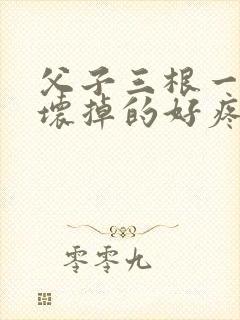 父子三根一
壞掉的好疼
零零九